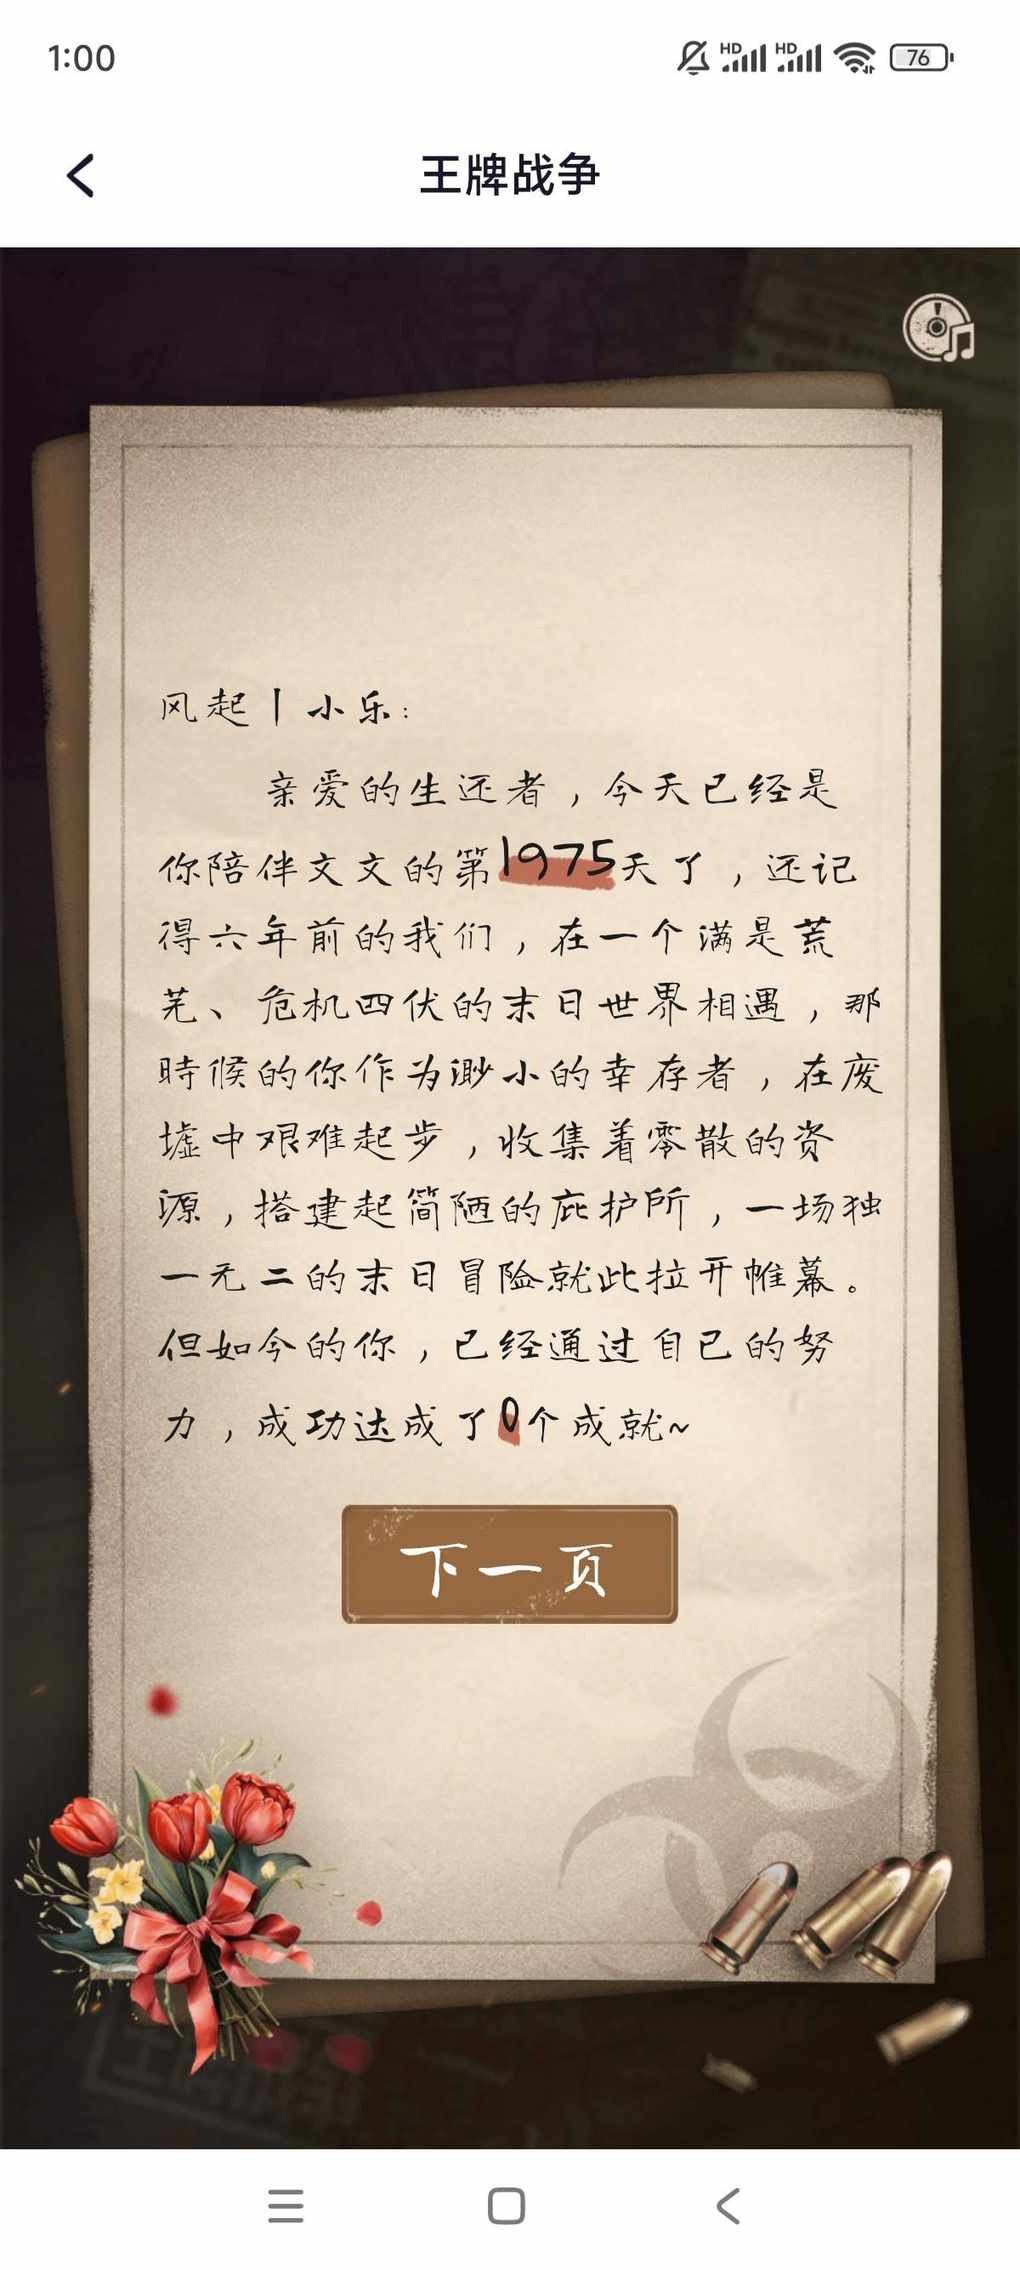 1:00
HD HD 76
王牌战争
风起丨小乐:
亲爱的生还者，今天已经是
你陪伴文文的第1975天了，还记
得六年前的我们，在一个满是荒
芜、危机四伏的末日世界相遇，那
時候的你作为渺小的幸存者，在废
墟中艰难起步，收集着零散的资
源，搭建起简陋的庇护所，一场独
一无二的末日冒险就此拉开帷幕。
但如今的你，已经通过自己的努
力，成功达成了0个成就~
下一页